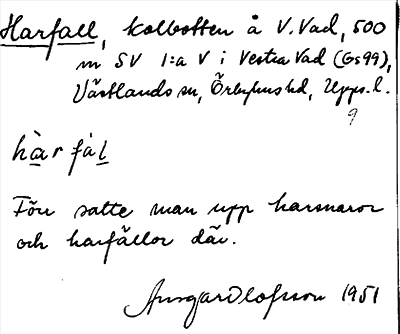 Harfall, kolbotten å V. Vad, 500
m SV 1:a V i Vestra Vad (Gs99),
Västlands sn, Örbyhus hd, Upps. l.
9
hàr fàl
Förr satte man upp harsnaror
och harfällor där.
Ansgar Olofsson 1951